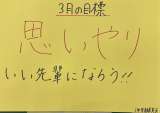 3月の目標
思いやり
いい先輩になろう!!